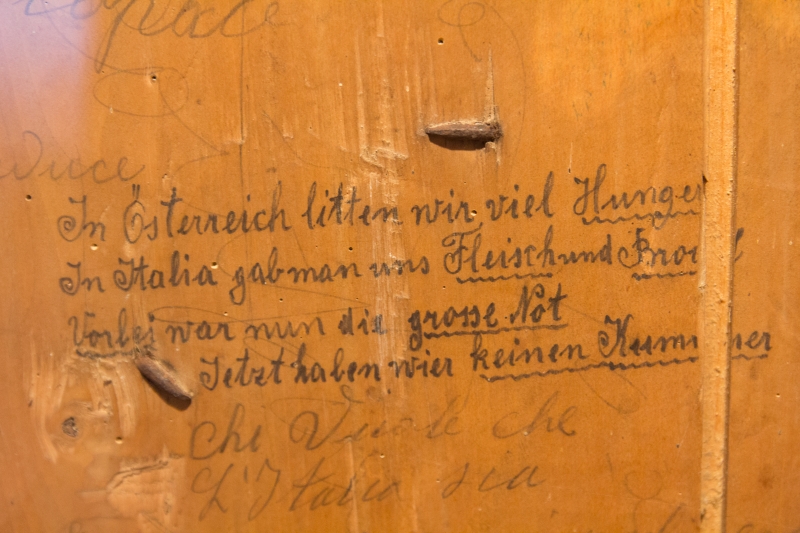 pace
Duce
In Österreich litten wir viel Hunger
In Italia gab man uns Fleisch und Brod
Vorbei war nun die grosse Not
Jetzt haben wier keinen Kummer
che Vuole che
L'Italia sia